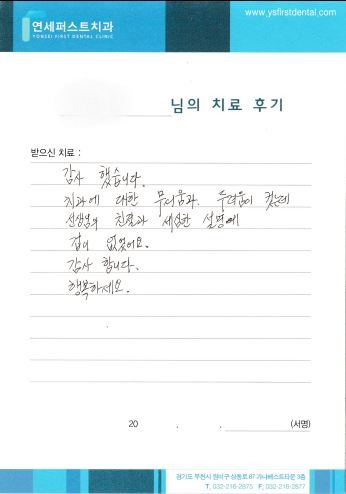 연세퍼스트치과
YONSEI FIRST DENTAL CLINIC
www.ysfirstdental.com
님의 치료 후기
받으신 치료 :
감사 했습니다.
치과에 대한 무더움과. 두려움이 컷는데
선생님의 친절과 세심한 설명에
겁이 없었어요.
감사 합니다.
행복하세요.
20 . . (서명)
경기도 부천시 원미구 상동로 87 가나베스트타운 3층
T. 032-216-2875 F. 032-216-2877